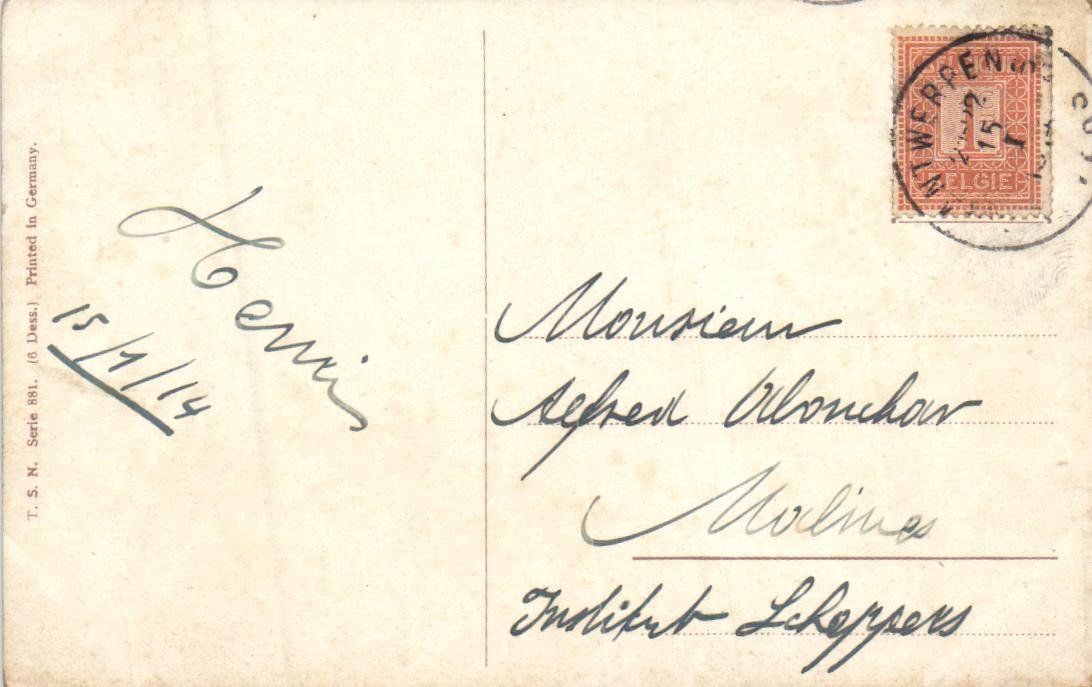 T. S. N. Serie 881. (6 Dess.) Printed in Germany.
15/1/14
Henri
1
BELGIE
ANTWERPEN
15
I
Monsieur
Alfred Abouchar
Malines
Institut Scheppers